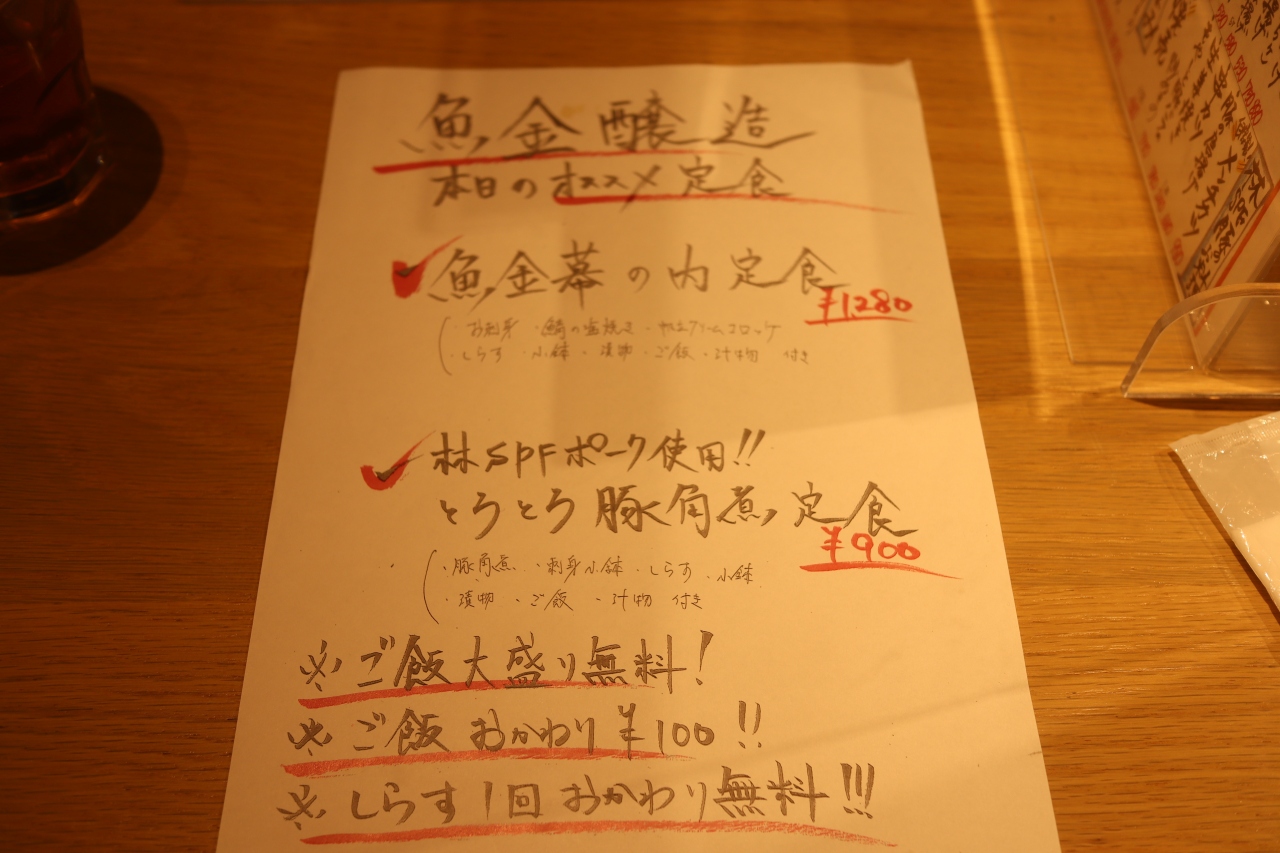 魚金醸造
本日のオススメ定食
魚金幕の内定食
¥1,280
・お刺身 ・鯖の塩焼き ・カニクリームコロッケ
・しらす ・小鉢 ・漬物 ・ご飯 ・汁物 付き
林SPFポーク使用!!
とろとろ豚角煮定食
¥900
・豚角煮 ・刺身小鉢 ・しらす ・小鉢
・漬物 ・ご飯 ・汁物 付き
※ご飯大盛り無料!
※ご飯おかわり¥100!!
※しらす1回おかわり無料!!!